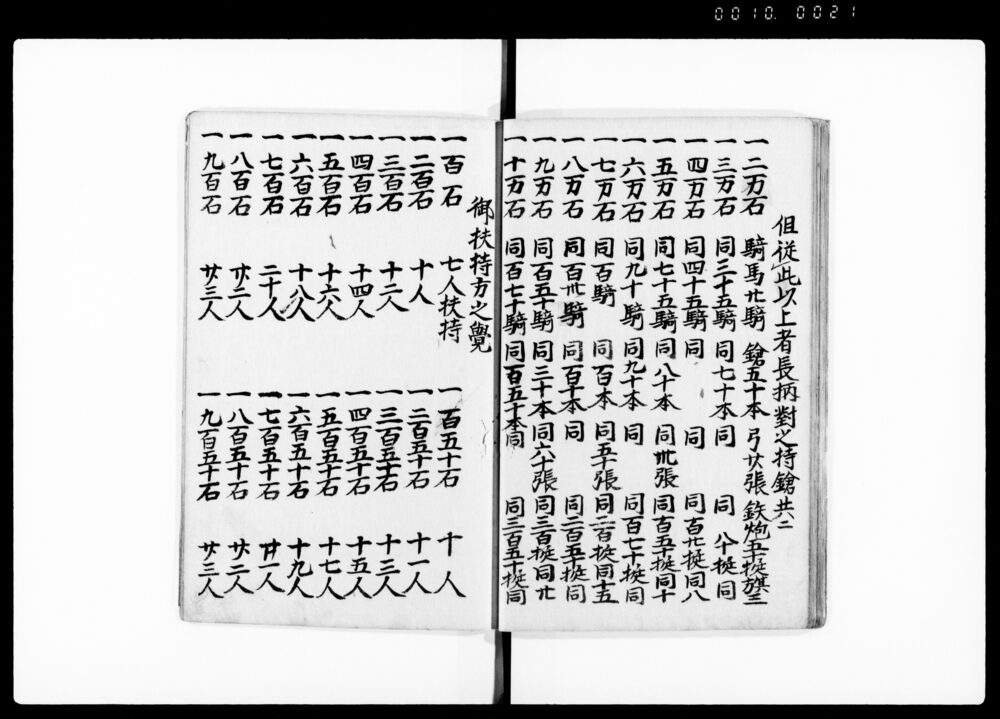 0010. 0021
但従此以上者長柄對之持鎗共ニ
一二万石 騎馬廿騎 鎗五十本 弓廿張 鉄炮五十挺 旗三
一三万石 同三十五騎 同七十本 同 同八十挺 同
一四万石 同四十五騎 同 同 同百廿挺 同八
一五万石 同七十五騎 同八十本 同卅張 同百五十挺 同十
一六万石 同九十騎 同九十本 同 同百七十挺 同
一七万石 同百騎 同百本 同五十張 同二百挺 同十五
一八万石 同百卅騎 同百十本 同 同二百五十挺 同
一九万石 同百五十騎 同三十本 同六十張 同三百挺 同廿
一十万石 同百七十騎 同百五十本 同 同三百五十挺 同
御扶持方之覺
一百石 七人扶持 一百五十石 十人
一二百石 十人 一二百五十石 十一人
一三百石 十二人 一三百五十石 十三人
一四百石 十四人 一四百五十石 十五人
一五百石 十六人 一五百五十石 十七人
一六百石 十八人 一六百五十石 十九人
一七百石 二十人 一七百五十石 廿一人
一八百石 廿二人 一八百五十石 廿二人
一九百石 廿三人 一九百五十石 廿三人